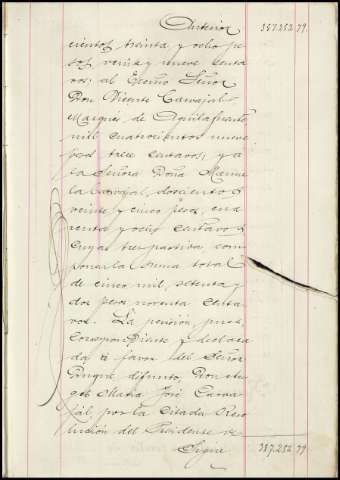 Anterior 357.252.79.
cientos treinta y ocho pe
sos veinte y nueve centa
vos: al Excmo Señor
Don Vicente Carvajal
Marqués de Aguilafuente
mil cuatrocientos nueve
pesos trece centavos; y a
la Señora Doña Manue
la Carvajal, doscientos
veinte y cinco pesos, cua
renta y ocho centavos
cuyas tres partidas com
ponen la suma total
de cinco mil, setenta y
dos pesos noventa centa
vos. La pensión, pues,
correspondiente y declara
da á favor del Señor
Duque difunto, Don
María José Carva
jal, por la citada Reso
lución del Presidente
Sigue 357.252.79